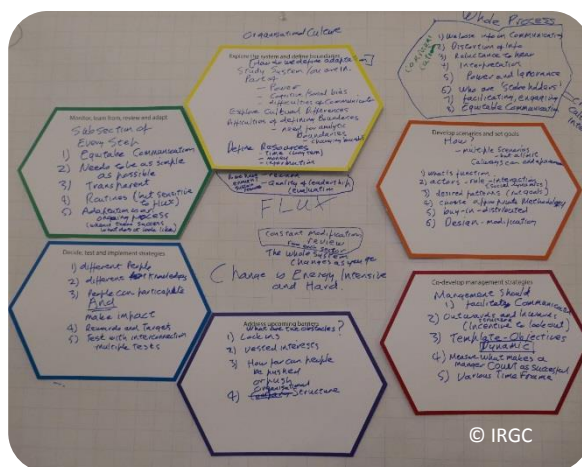 Organisational Culture
Explore the system and define boundaries
How do we define adapt
Study System
Part of
- Power
- Cognitive Social bias
- difficulties of Communication
Explore Cultural Differences
difficulties of defining Boundaries
- need for analytic
Boundaries
Define Resources
- Time (long term)
- money
- quality of leadership
evaluation
FLUX
constant modification
review
The whole system
changes as you go
Change is Energy Intensive
and Hard.
Whole Process
2) Distortion of Info
3) Reluctance to hear
4) Interpretation
5) Power and Ignorance
6) Who are Stakeholders
7) Facilitating, Engaging
8) Equitable Communication
Monitor, learn from, review and adapt
Subsection of
Every Step
1) Equitable Communication
2) Needs to be as simple
as possible
3) Transparent
4) Routines (but sensitive
to flux)
5) Adaptation as an
ongoing process
Develop scenarios and set goals
How?
- multiple Scenarios
1) what is function
2) actors - role - interaction
(social dynamics)
3) desired patterns (not goals)
4) choose appropriate Methodology
5) buy-in - distributed
6) Design - modification
Decide, test and implement strategies
1) different People
2) different knowledges
3) People can participate
And
make impact
4) Rewards and Target
5) Test with interconnection
multiple tests
Address upcoming barriers
What are the obstacles?
1) Lock ins
2) Vested interests
3) How far can people
be pushed
or push
4) Organisational
Structure
Co-develop management strategies
Management should
1) Facilitate Communication
2) Outwards and Inwards
(Incentive to look out)
3) Template - Objectives
Dynamic
4) Measure what makes a
manager Count as successful
5) Various Time Frame
© IRGC